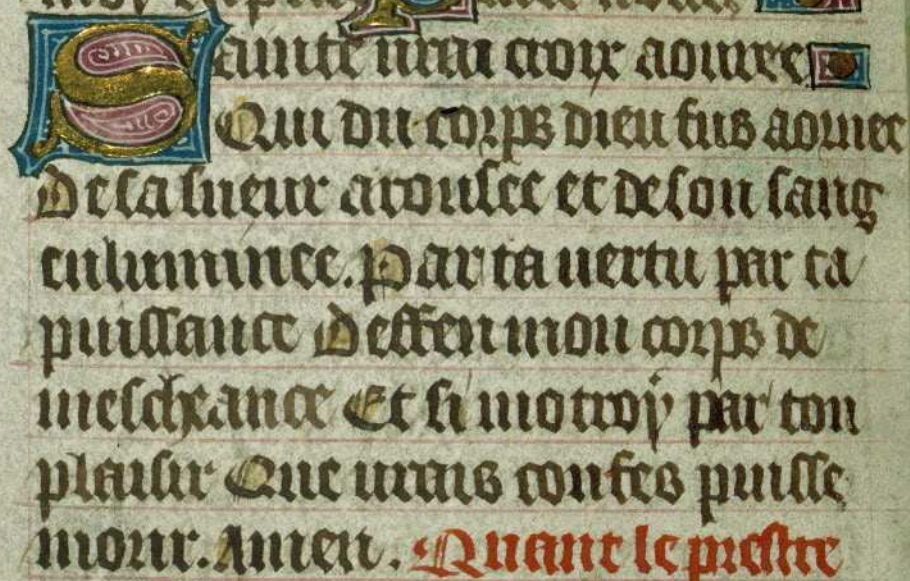 Sainte urai croix aouree
Qui du corps dieu fus aournee
De sa sueur arousee et de son sang
enluminee. Par ta uertu par ta
puissance Deffen mon corps de
mescheance Et si motroy par ton
plaisir Que urais confes puisse
morir. Amen. Quant le prestre